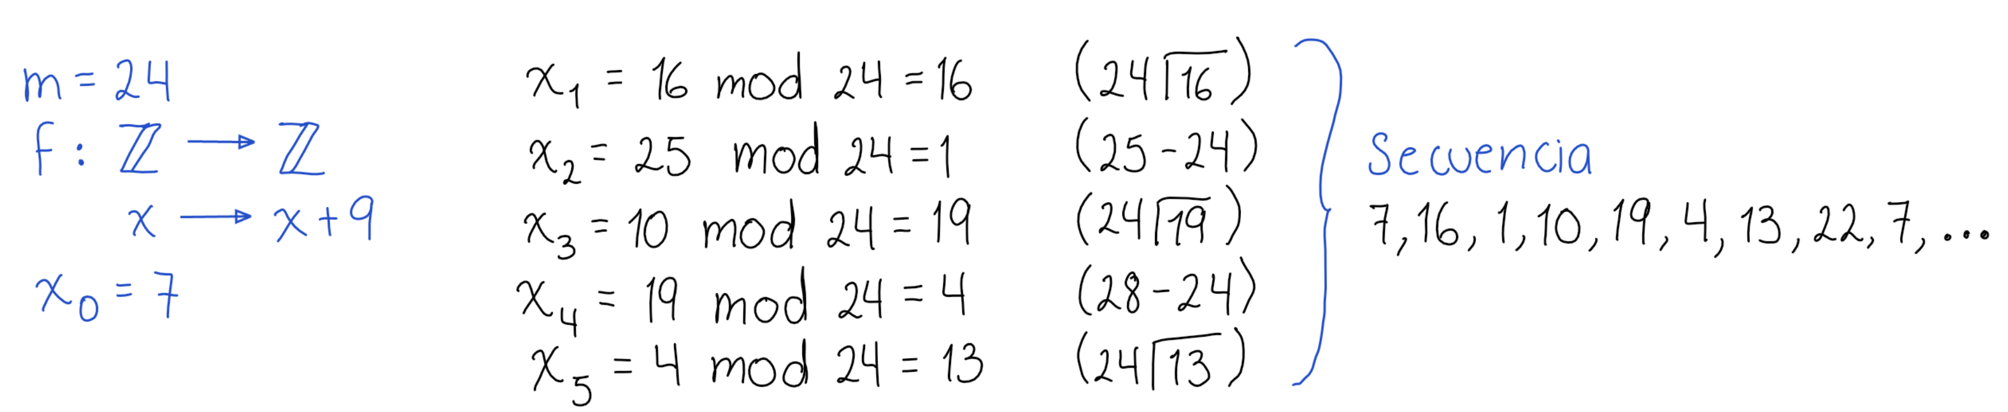 m = 24
f : ℤ → ℤ
x → x + 9
x₀ = 7
x₁ = 16 mod 24 = 16 (24⟌16)
x₂ = 25 mod 24 = 1 (25 - 24)
x₃ = 10 mod 24 = 19 (24⟌19)
x₄ = 19 mod 24 = 4 (28 - 24)
x₅ = 4 mod 24 = 13 (24⟌13)
Secuencia
7, 16, 1, 10, 19, 4, 13, 22, 7, ...